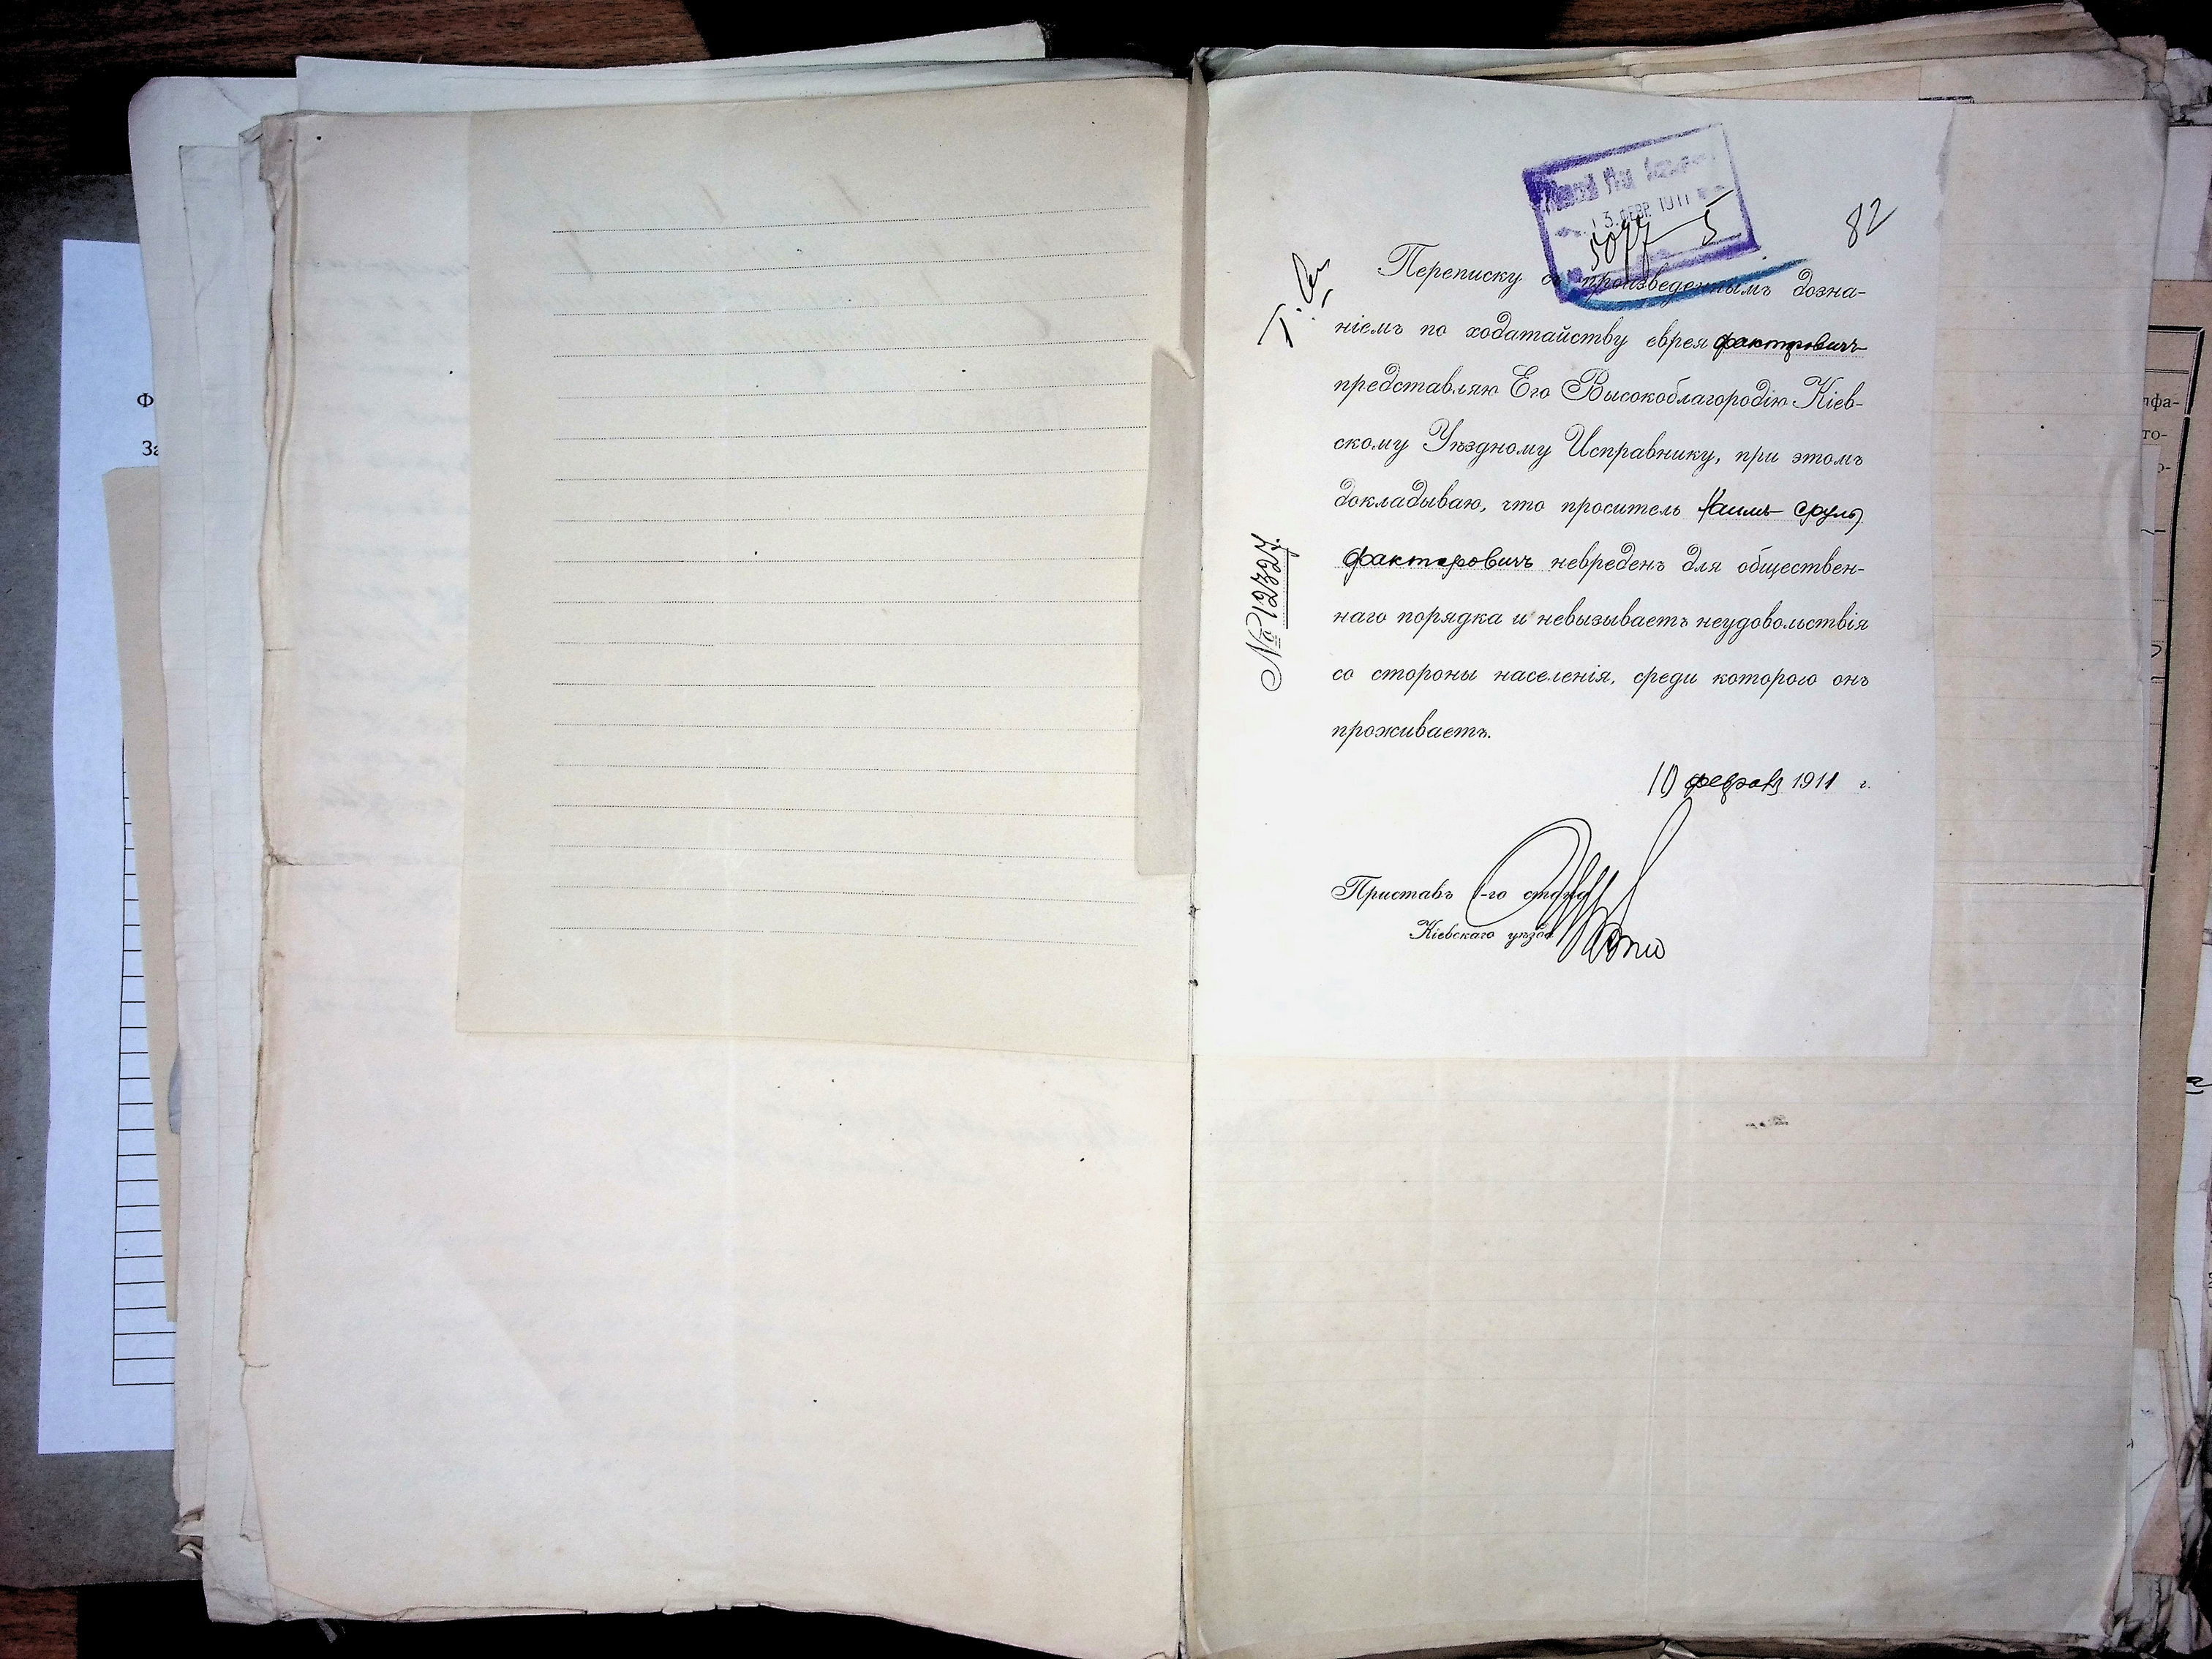 Ф
За
13 ФЕВР. 1911
5077 5
82
Переписку съ произведеннымъ дозна-
ніемъ по ходатайству еврея Факторовичъ
представляю Его Высокоблагородію Кіев-
скому Уѣздному Исправнику, при этомъ
докладываю, что проситель Хаимъ Сруль
Факторовичъ невреденъ для обществен-
наго порядка и невызываетъ неудовольствія
со стороны населенія, среди которого онъ
проживаетъ.
10 февраля 1911 г.
Приставъ 1-го стана
Кіевскаго уѣзда
№ 12327.
фа-
то-